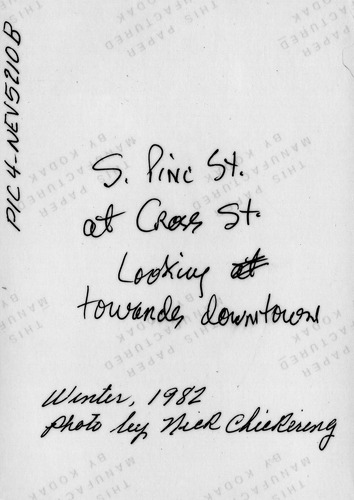 PIC 4-NEV5210B
S. Pine St.
at Cross St.
Looking at
towards downtown
Winter, 1982
photo by Nick Chickering
THIS PAPER
MANUFACTURED
BY KODAK